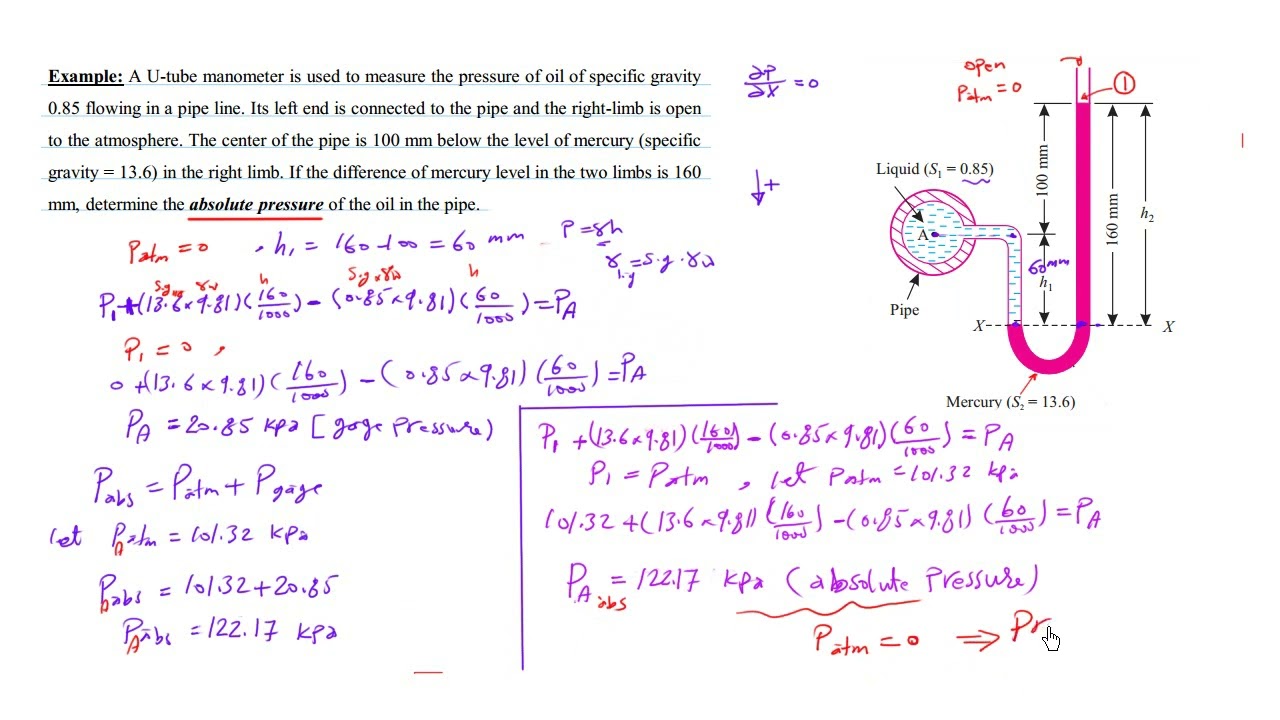 Example: A U-tube manometer is used to measure the pressure of oil of specific gravity
0.85 flowing in a pipe line. Its left end is connected to the pipe and the right-limb is open
to the atmosphere. The center of the pipe is 100 mm below the level of mercury (specific
gravity = 13.6) in the right limb. If the difference of mercury level in the two limbs is 160
mm, determine the absolute pressure of the oil in the pipe.
∂P/∂X = 0
↓+
open
Patm = 0
①
Liquid (S₁ = 0.85)
A
Pipe
100 mm
60mm
h₁
160 mm
h₂
X
X
Mercury (S₂ = 13.6)
Patm = 0 , h₁ = 160-100 = 60 mm
P = γh
γ = S.g . γw
S.g γw h S.g x γw h
P₁ + (13.6 x 9.81) (160/1000) - (0.85 x 9.81) (60/1000) = PA
P₁ = 0 ,
0 + (13.6 x 9.81) (160/1000) - (0.85 x 9.81) (60/1000) = PA
PA = 20.85 kPa [gage Pressure)
Pabs = Patm + Pgage
let Patm = 101.32 kPa
Pabs = 101.32 + 20.85
PAabs = 122.17 kPa
P₁ + (13.6 x 9.81) (160/1000) - (0.85 x 9.81) (60/1000) = PA
P₁ = Patm , let Patm = 101.32 kPa
101.32 + (13.6 x 9.81) (160/1000) - (0.85 x 9.81) (60/1000) = PA
PA abs = 122.17 kPa (absolute Pressure)
Patm = 0 ⇒ Pr